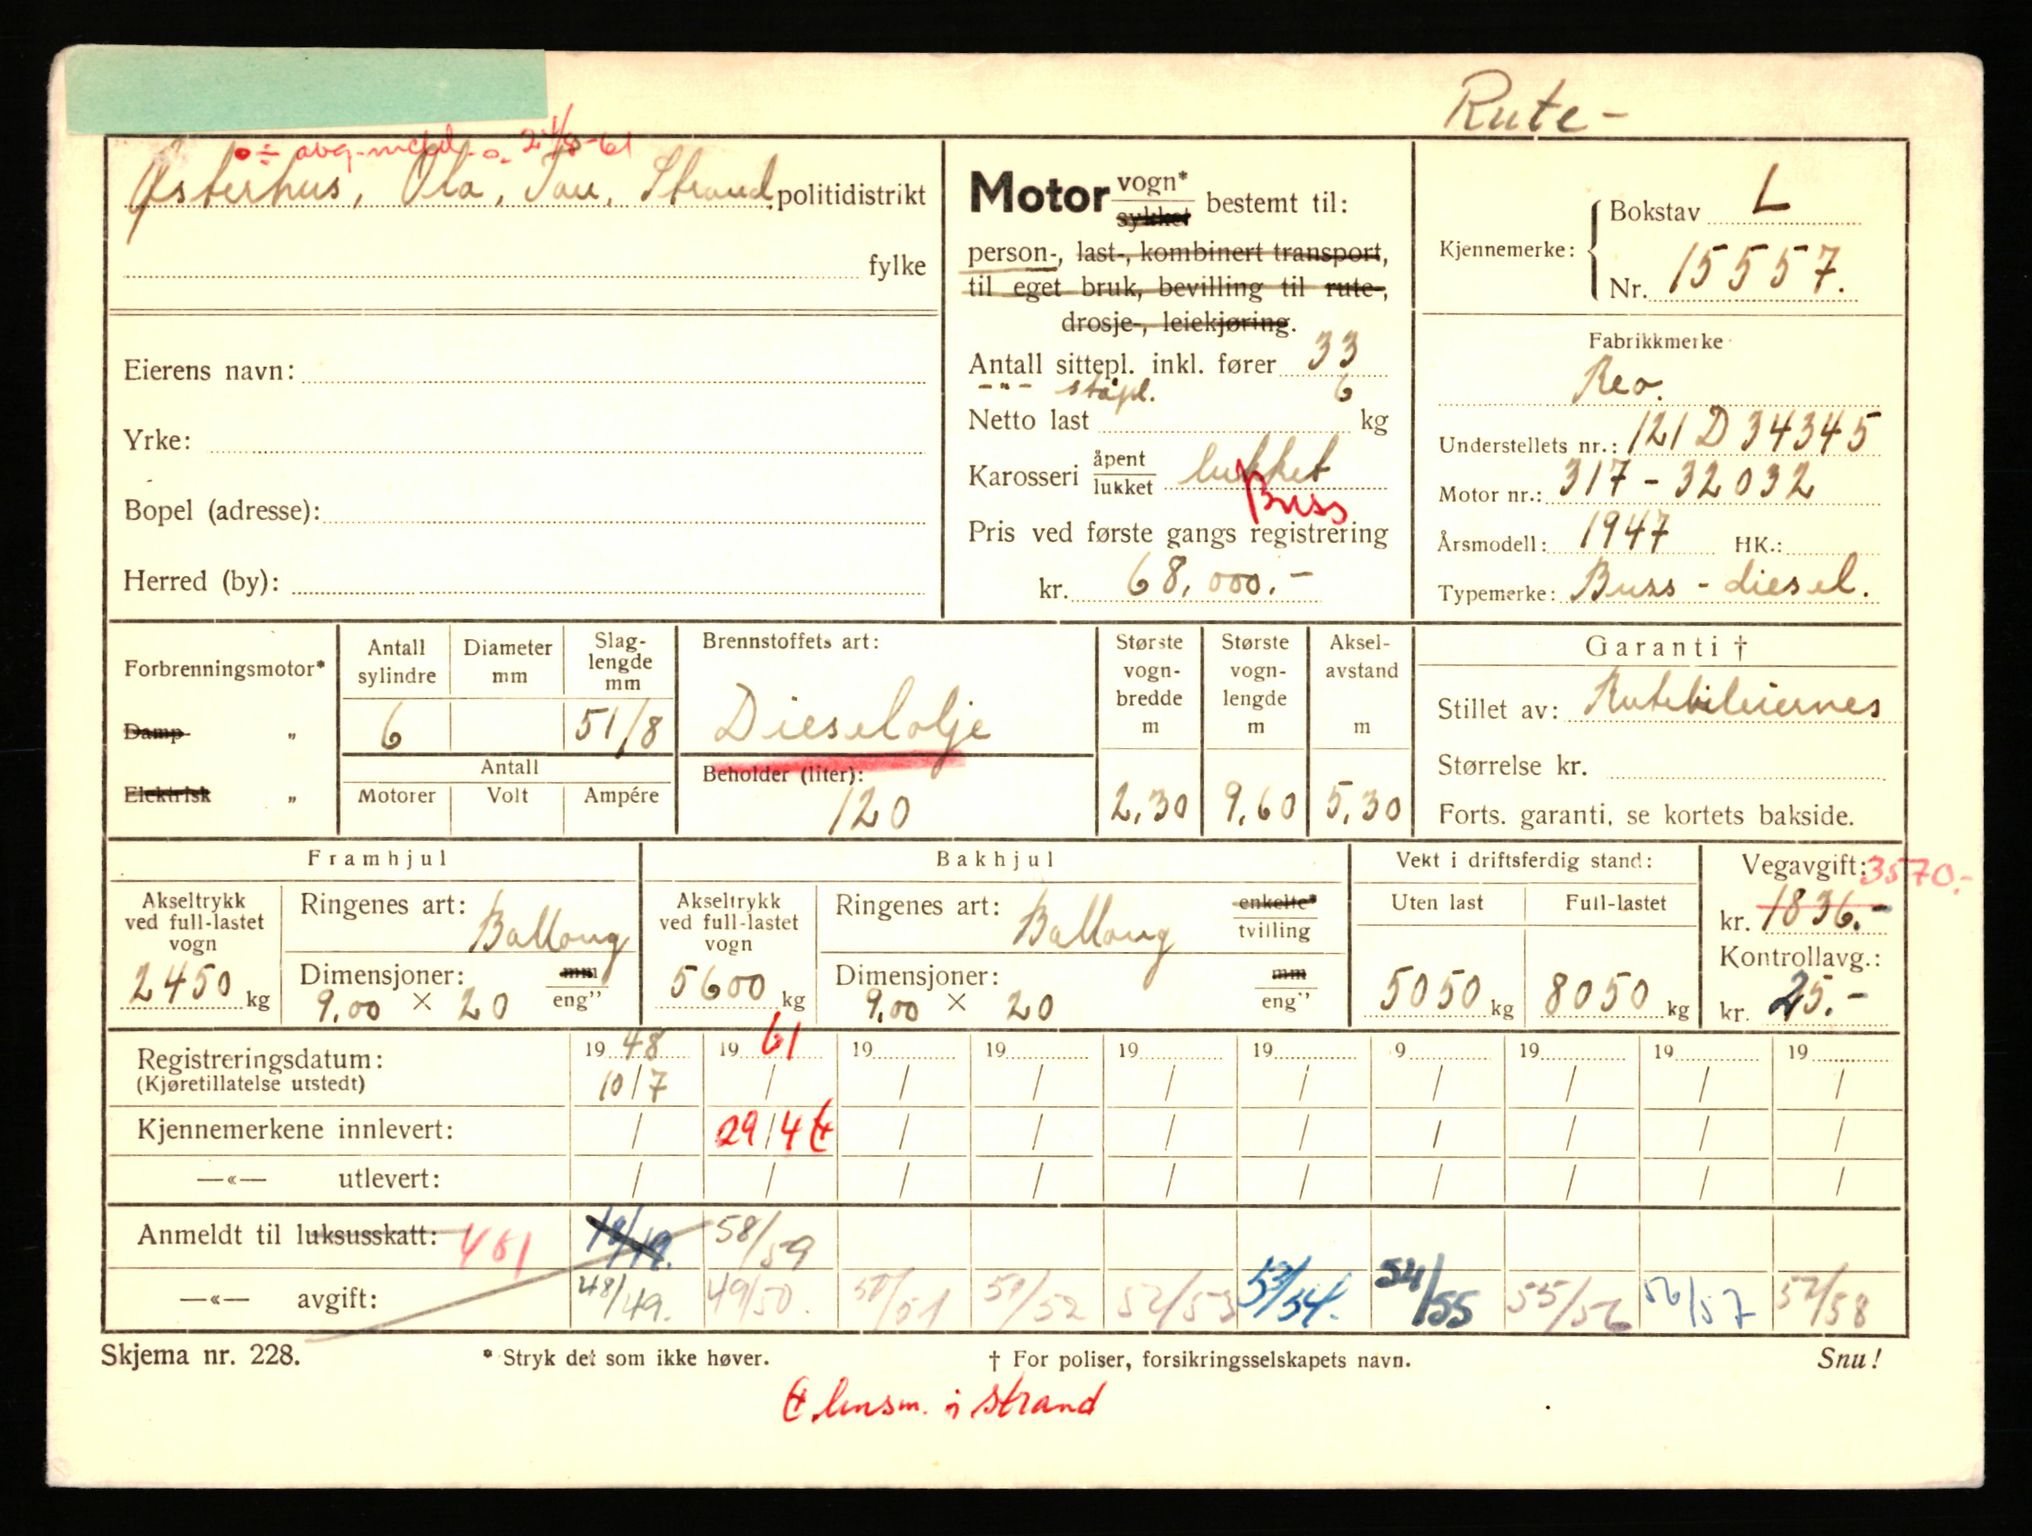 Rute-
÷ avg. meld. 24/8-61
Østerhus, Ola, Tau, Strand politidistrikt
fylke
Eierens navn:
Yrke:
Bopel (adresse):
Herred (by):
Motor vogn* sykkel bestemt til:
person-, last-, kombinert transport,
til eget bruk, bevilling til rute-,
drosje-, leiekjøring.
Antall sittepl. inkl. fører 33
-"- ståpl. 6
Netto last kg
Karosseri åpent lukket lukket
Buss
Pris ved første gangs registrering
kr. 68.000.-
Kjennemerke: Bokstav L
Nr. 15557.
Fabrikkmerke
Reo.
Understellets nr.: 121 D 34345
Motor nr.: 317-32032
Årsmodell: 1947 HK.:
Typemerke: Buss - diesel.
Forbrenningsmotor*
Damp "
Elektrisk "
Antall sylindre 6
Diameter mm
Slaglengde mm 51/8
Antall
Motorer Volt Ampére
Brennstoffets art:
Dieselolje
Beholder (liter):
120
Største vognbredde m 2,30
Største vognlengde m 9,60
Akselavstand m 5,30
Garanti †
Stillet av: Rutebileiernes
Størrelse kr.
Forts. garanti, se kortets bakside.
Framhjul
Akseltrykk ved full-lastet vogn 2450 kg
Ringenes art: Ballong
Dimensjoner: mm eng"
9.00 × 20
Bakhjul
Akseltrykk ved full-lastet vogn 5600 kg
Ringenes art: Ballong enkelte* tvilling
Dimensjoner: mm eng"
9.00 × 20
Vekt i driftsferdig stand:
Uten last Full-lastet
5050 kg 8050 kg
Vegavgift: 3570.-
kr. 1836.-
Kontrollavg.:
kr. 25.-
Registreringsdatum: 1948 1961 19 19 19 19 9 19 19 19
(Kjøretillatelse utstedt) 10/7 / / / / / / / / /
Kjennemerkene innlevert: / 29/4 / / / / / / / /
—«— utlevert: / / / / / / / / / /
Anmeldt til luksusskatt: 461 58/59
—«— avgift: 48/49. 49/50. 50/51 51/52 52/53 53/54. 54/55 55/56 56/57 57/58
Skjema nr. 228. * Stryk det som ikke høver. † For poliser, forsikringsselskapets navn. Snu!
lensm. i Strand